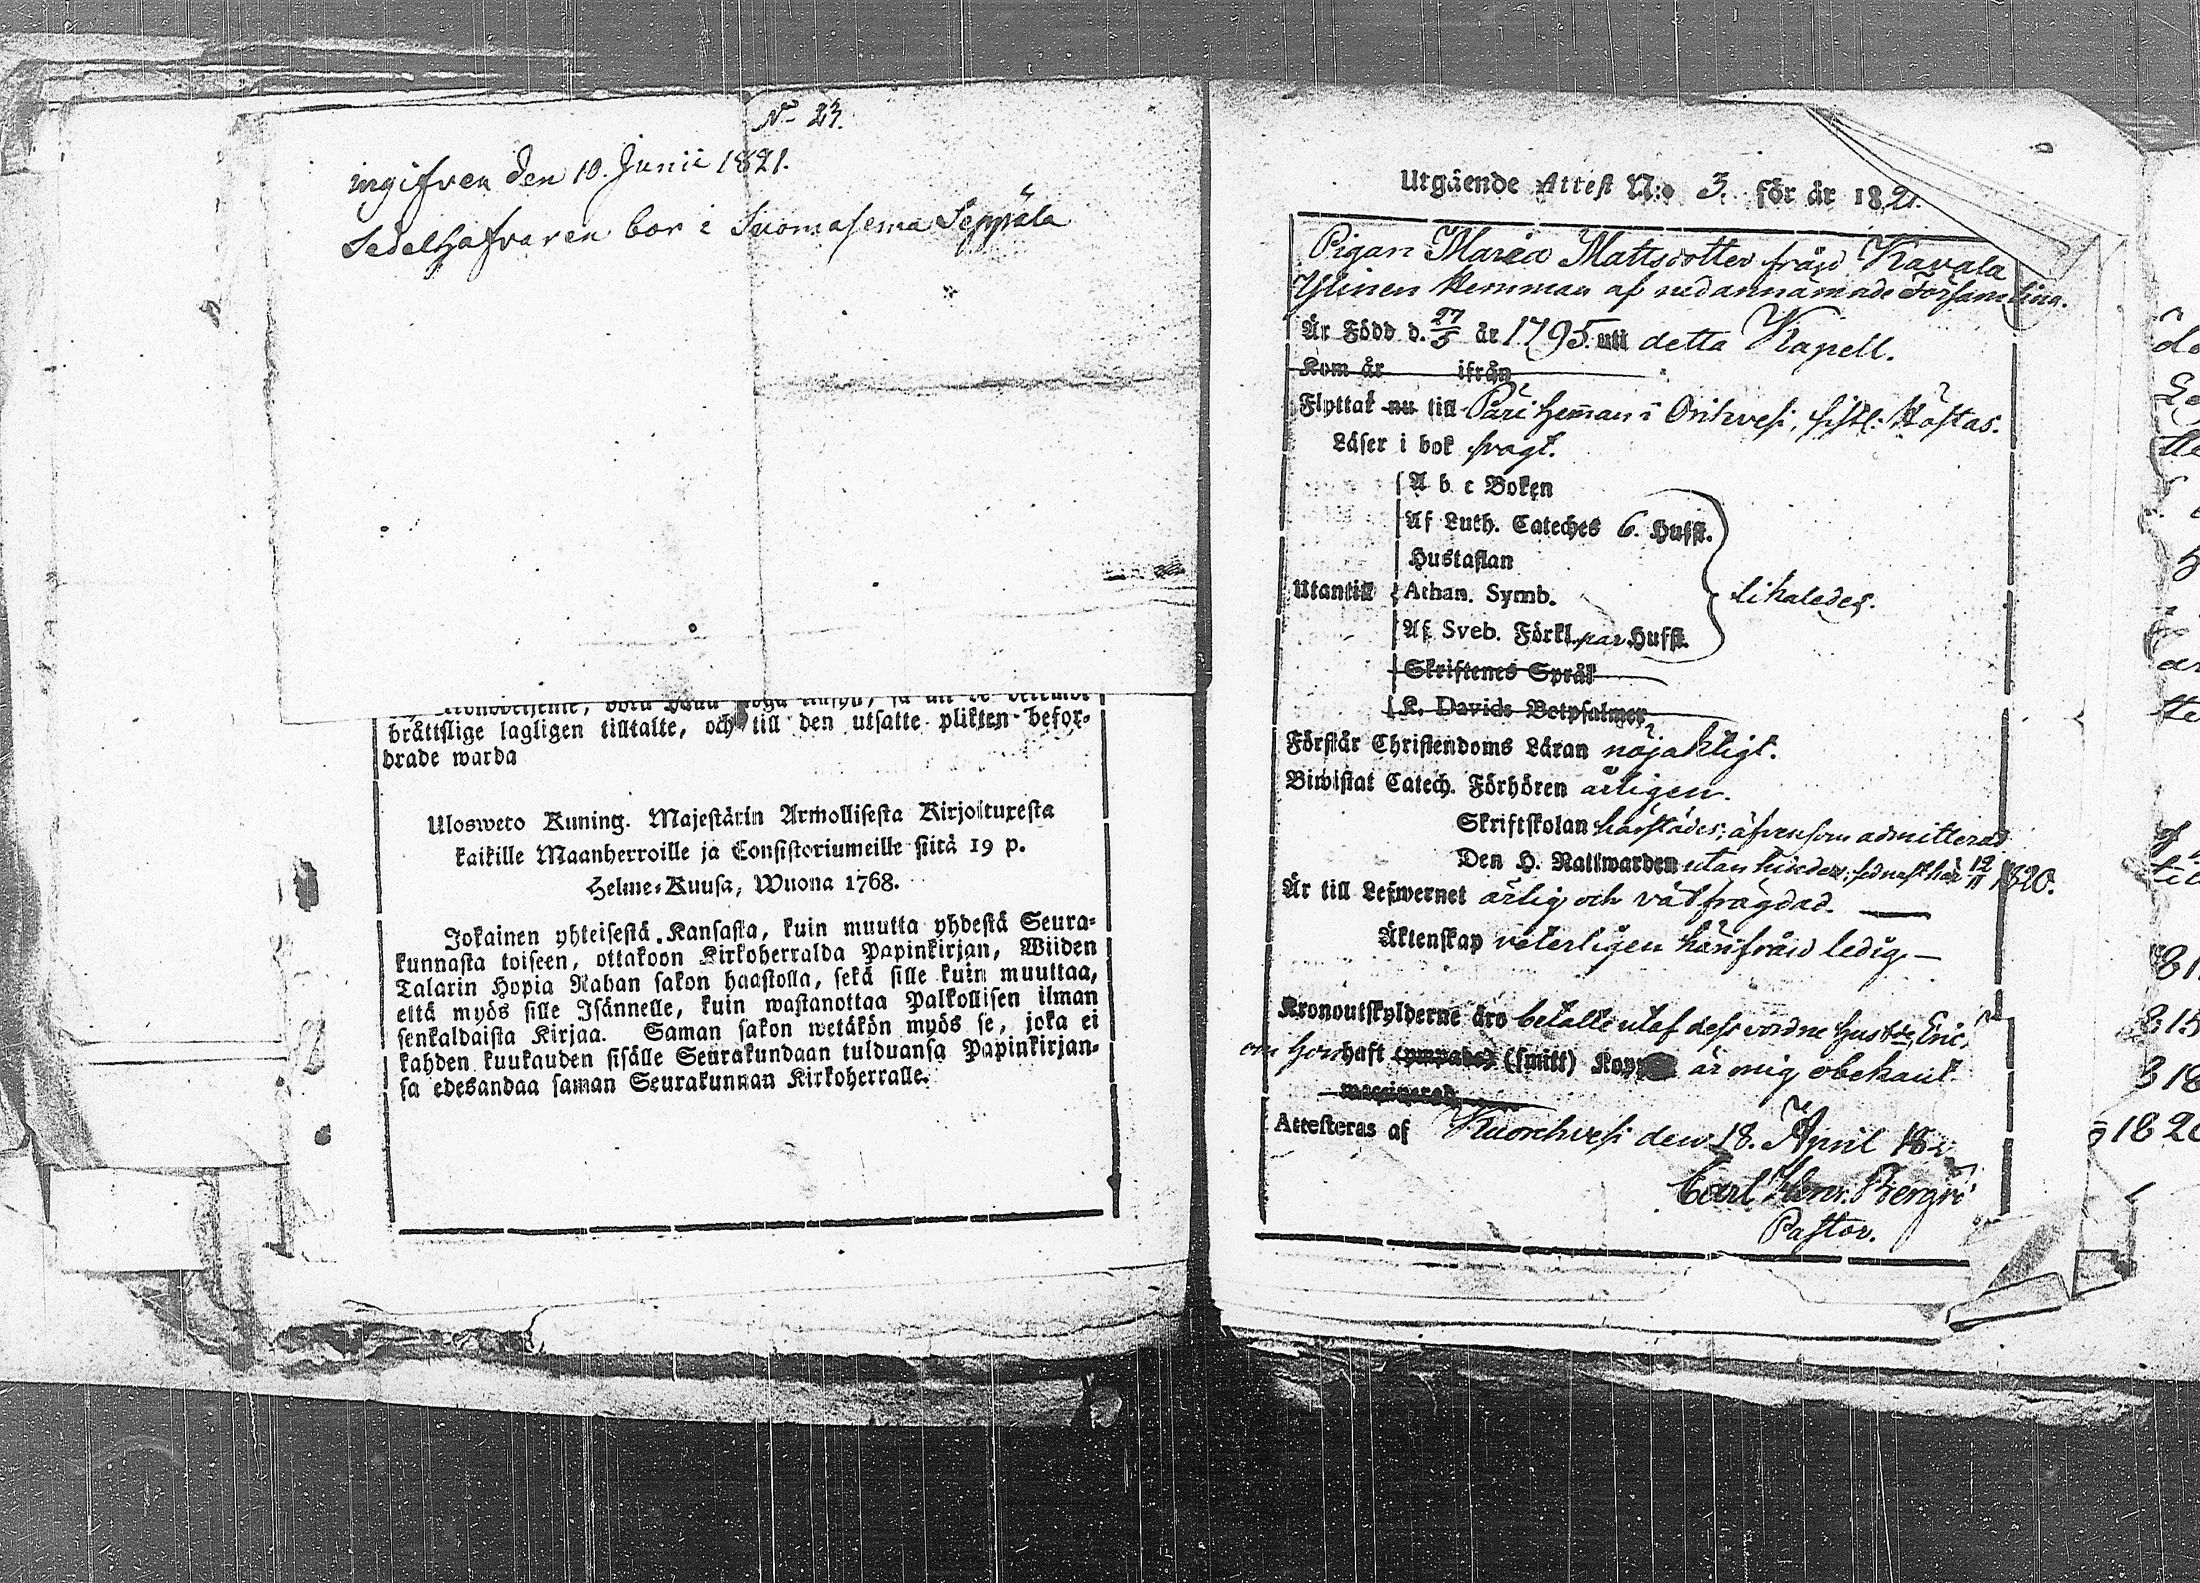 No 23.
ingifven den 10. Junii 1821.
Sedelhafvaren bor i Suomasema Seppälä
brättslige lagligen tilltalte, och till den utsatte plikten befor-
drade warda
Ulosweto Kuning. Majestätin Armollisesta Kirjoituxesta
kaikille Maanherroille ja Consistoriumeille siitä 19 p.
Helme-Kuusa, Wuona 1768.
Jokainen yhteisestä Kansasta, kuin muutta yhdestä Seura-
kunnasta toiseen, ottakoon Kirkoherralda Papinkirjan, Wiiden
Talarin Hopia Rahan sakon haastolla, sekä sille kuin muuttaa,
että myös sille Isännelle, kuin wastanottaa Palkollisen ilman
senkaldaista Kirjaa. Saman sakon wetäkön myös se, joka ei
kahden kuukauden sisälle Seurakundaan tulduansa Papinkirjan-
sa edesandaa saman Seurakunnan Kirkoherralle.
Utgående Attest N:o 3. för år 1821.
Pigan Maria Mattsdotter från Kavala
Ylinen hemman af nedannämnde Församling.
Är Född d. 27/5 år 1795. uti detta Kapell.
Kom år ifrån
Flyttat nu till Päri heman i Orihvesi, sistl: Höstas.
Läser i bok svagt.
A b c Boken
Af Luth. Cateches 6. Hufst.
Hustaflan
Utantill Athan. Symb. likaledes.
Af Sveb. Förkl. par Hufst.
Skriftenes Språk
K. Davids Botpsalmer
Förstår Christendoms Läran nöjaktligt.
Biwistat Catech. Förhören årligen.
Skriftskolan härstädes; äfvensom admitterad
Den H. Nattwarden utan hinder; sednast här 12/11 1820.
Är till Lefwernet ärlig och välfrägdad.
Äktenskap veterligen härifrån ledig
Kronoutskylderne äro betalte utaf dess vordne husb:de Eric,
om hon haft (ympade) (smitt) Kopp är mig obekant.
vaccinerad
Attesteras af Kuorehvesi den 18. April 182
Carl Henr. Bergro
Pastor.